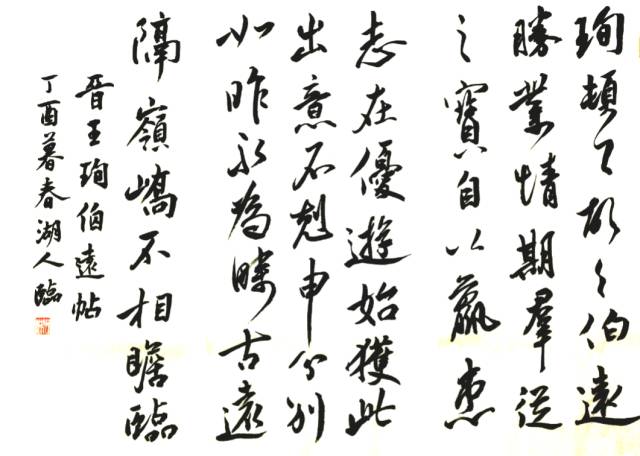 珣頓首頓首伯遠
勝業情期羣從
之寶自以羸患
志在優遊始獲此
出意不剋申分別
如昨永為疇古遠
隔嶺嶠不相瞻臨
晉王珣伯遠帖
丁酉暮春湖人臨